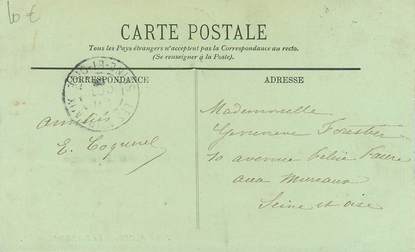 10 €
CARTE POSTALE
Tous les Pays étrangers n'acceptent pas la Correspondance au recto.
(Se renseigner à la Poste).
CORRESPONDANCE
ADRESSE
Amitiés
E. Coquerel
Mademoiselle
Forestier
10 avenue Félix Faure
aux Mureaux
Seine et oise